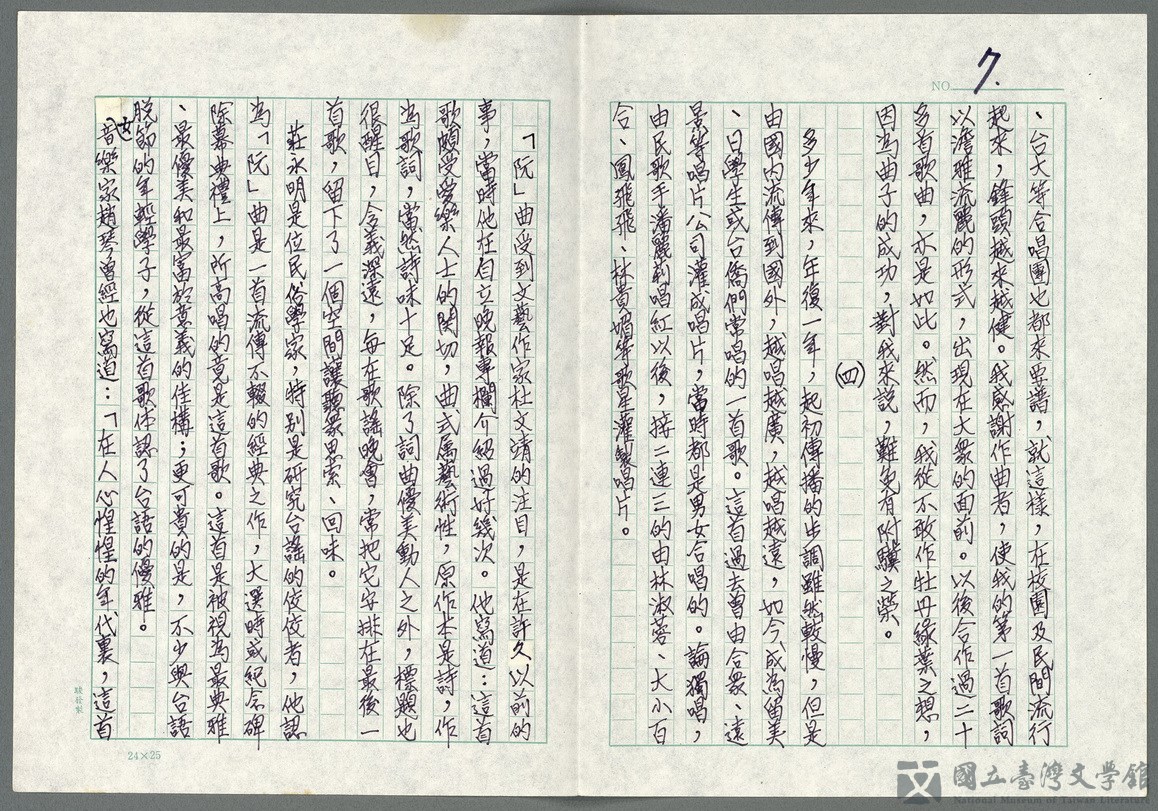 NO.
7.
、台大等合唱團也都來要譜，就這樣，在校園及民間流行
起來，鋒頭越來越健。我感謝作曲者，使我的第一首歌詞
以濟雅流麗的形式，出現在大衆的面前。以後合作過二十
多首歌曲，亦是如此。然而，我從不敢作牡丹綠葉之想，
因為曲子的成功，對我來說，難免有附驥之榮。
(四)
多少年來，年復一年，起初傳播的步調雖然較慢，但是
由國內流傳到國外，越唱越廣，越唱越遠，如今成為留美
、日學生或台僑們常唱的一首歌。這首過去曾由合衆、遠
景等唱片公司灌成唱片，當時都是男女合唱的。論獨唱，
由民歌手潘麗莉唱紅以後，接二連三的由林淑蓉、大小百
合、鳳飛飛、林黃媚等歌星灌製唱片。
「阮」曲受到文藝作家杜文靖的注目，是在許久以前的
事，當時他在自立晚報專欄介紹過好幾次。他寫道：這首
歌頗受愛樂人士的関切，曲式属藝術性，原作本是詩，作
為歌詞，當然詩味十足。除了詞曲優美動人之外，標題也
很醒目，含義深遠，每在歌謠晚會，常把它安排在最後一
首歌，留下了一個空間讓聽衆思索、回味。
莊永明是位民俗學家，特别是研究台謠的佼佼者，他認
為「阮」曲是一首流傳不輟的經典之作，大選時或紀念碑
除幕典禮上，所高唱的竟是這首歌。這首是被視為最典雅
、最優美和最富於意義的佳構；更可貴的是，不少與台語
脱節的年輕學子，從這首歌体認了台語的優雅。
女音樂家趙琴曾經也寫道：「在人心惶惶的年代裏，這首
24×25
國立臺灣文學館
National Museum of Taiwan Literature